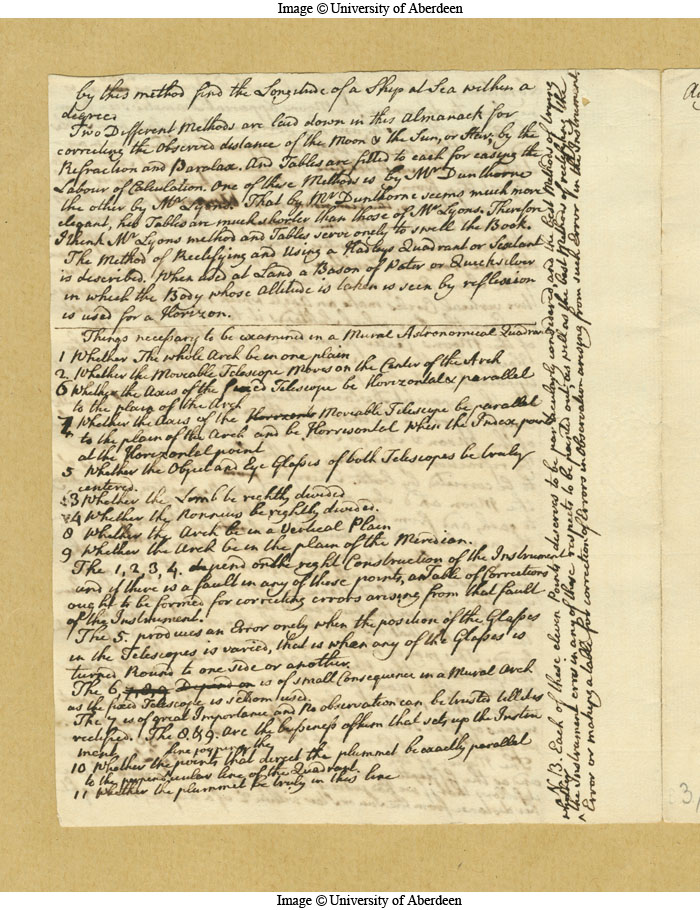 Image © University of Aberdeen
by this method find the Longitude of a Ship at Sea within a
degree
Two Different Methods are laid down in this Almanack for
correcting the Observed distance of the Moon & the Sun, or Star, by the
Refraction and Paralax. And Tables are fitted to each for easing the
Labour of Calculation. One of these Methods is by Mr Dunthorne
the other by Mr Lyons. That by Mr Dunthorne seems much more
elegant, his Tables are much shorter than those of Mr Lyons. Therefore
I think Mr Lyons method and Tables serve onely to swell the Book.
The Method of Rectifying and Using a Hadleys Quadrant or Sextant
is described. When used at Land a Bason of Water or Quicksilver
in which the Body whose Altitude is taken is seen by reflexion
is used for a Horizon.
Things necessary to be examined in a Mural Astronomical Quadran
1 Whether The whole Arch be in one plain
2 Whether the Moveable Telescope Moves on the Center of the Arch
6 Whether the Axis of the fixed Telescope be Horizontal & parallel
to the plain of the Arch
7 Whether the Axis of the Horizon Moveable Telescope be parallel
to the plain of the Arch and be Horrisontal when the Index point
at the Horizontal point
5 Whether the Object and Eye Glasses of both Telescopes be truly
centered.
3 Whether the Limb be rightly divided
4 Whether the Nonnius be rightly divided.
8 Whether the Arch be in a Vertical Plain
9 Whether the Arch be in the plain of the Meridian.
The 1, 2, 3, 4. depend on the right Construction of the Instrument
and if there is a fault in any of those points, a Table of Corrections
ought to be formed for correcting errors arising from that fault
of the Instrument.
The 5. produces an Error onely when the position of the Glasses
in the Telescopes is varied, that is when any of the Glasses is
turned Round to one side or another.
The 6, 7, 8, 9 Depend on is of small Consequence in a Mural Arch
as the fixed Telescope is seldom used.
The 7 is of great Importance and no observation can be trusted till it is
rectified. The 8. & 9. are the business of him that sets up the Instru
ment
10 Whether the points that direct the plummet be exactly parallel
to the perpendicular line of the Quadrant.
11 Whether the plummet be truly in this line
N. B. Each of these eleven Points deserves to be particularly considered, and the best Methods of trying
whether the Instrument errs in any of these respects to be pointed out; as well as the best Method of rectifying the
Error or making a table for correction of Errors in Observation arising from such Error in the Instrument.
3,
Image © University of Aberdeen